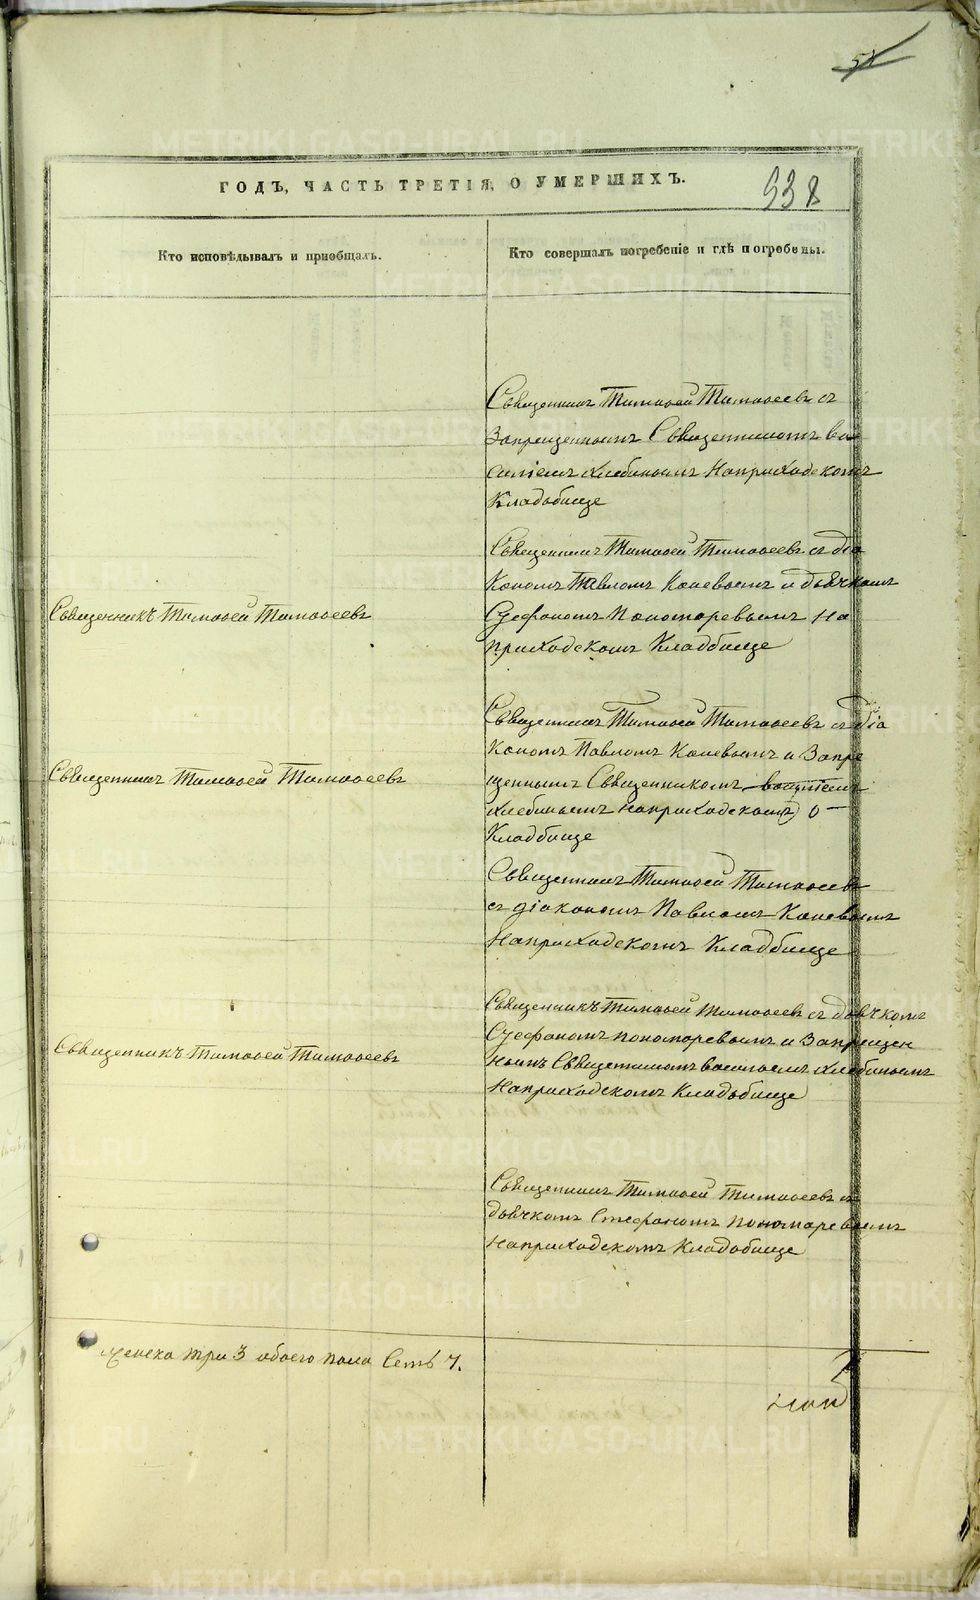 58
ГОДЪ, ЧАСТЬ ТРЕТІЯ, О УМЕРШИХЪ.
938
Кто исповѣдывалъ и приобщалъ.
Кто совершалъ погребеніе и гдѣ погребены.
Священникъ Тимоѳей Тимоѳеевъ съ
Запрещеннымъ Священникомъ Ва
силіемъ Хлебинымъ На приходскомъ
Кладбище
Священникъ Тимоѳей Тимоѳеевъ
Священникъ Тимоѳей Тимоѳеевъ съ діа
кономъ Павломъ Коневымъ и дьячкомъ
Стефаномъ Пономаревымъ На
приходскомъ Кладбище
Священникъ Тимоѳей Тимоѳеевъ
Священникъ Тимоѳей Тимоѳеевъ съ діа
кономъ Павломъ Коневымъ и Запре
щеннымъ Священникомъ Васильемъ
Хлебинымъ На приходскомъ
Кладбище
Священникъ Тимоѳей Тимоѳеевъ
съ діакономъ Павломъ Коневымъ
На приходскомъ Кладбище
Священникъ Тимоѳей Тимоѳеевъ
Священникъ Тимоѳей Тимоѳеевъ съ дьячкомъ
Стефаномъ Пономаревымъ и Запрещен
нымъ Священникомъ Васильемъ Хлебинымъ
На приходскомъ Кладбище
Священникъ Тимоѳей Тимоѳеевъ съ
дьячкомъ Стефаномъ Пономаревымъ
На приходскомъ Кладбище
женска три 3 обоего пола Семь 7.
METRIKI.GASO-URAL.RU